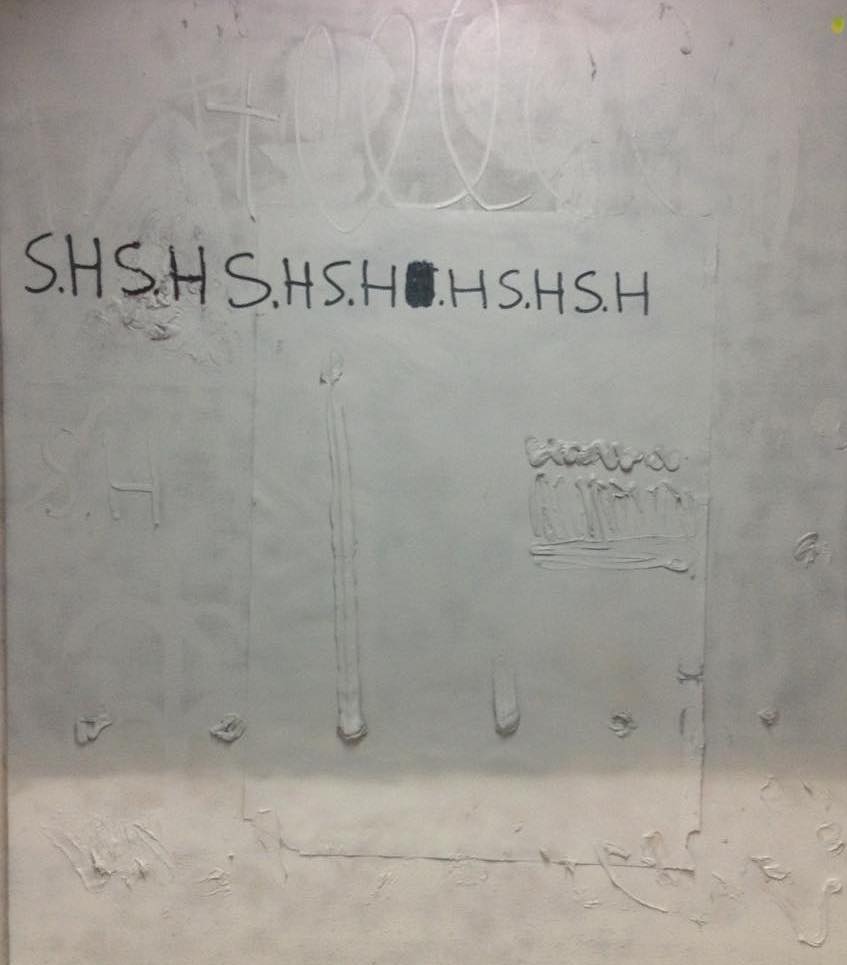 S.H S.H S.H S.H .H S.H S.H
S.H